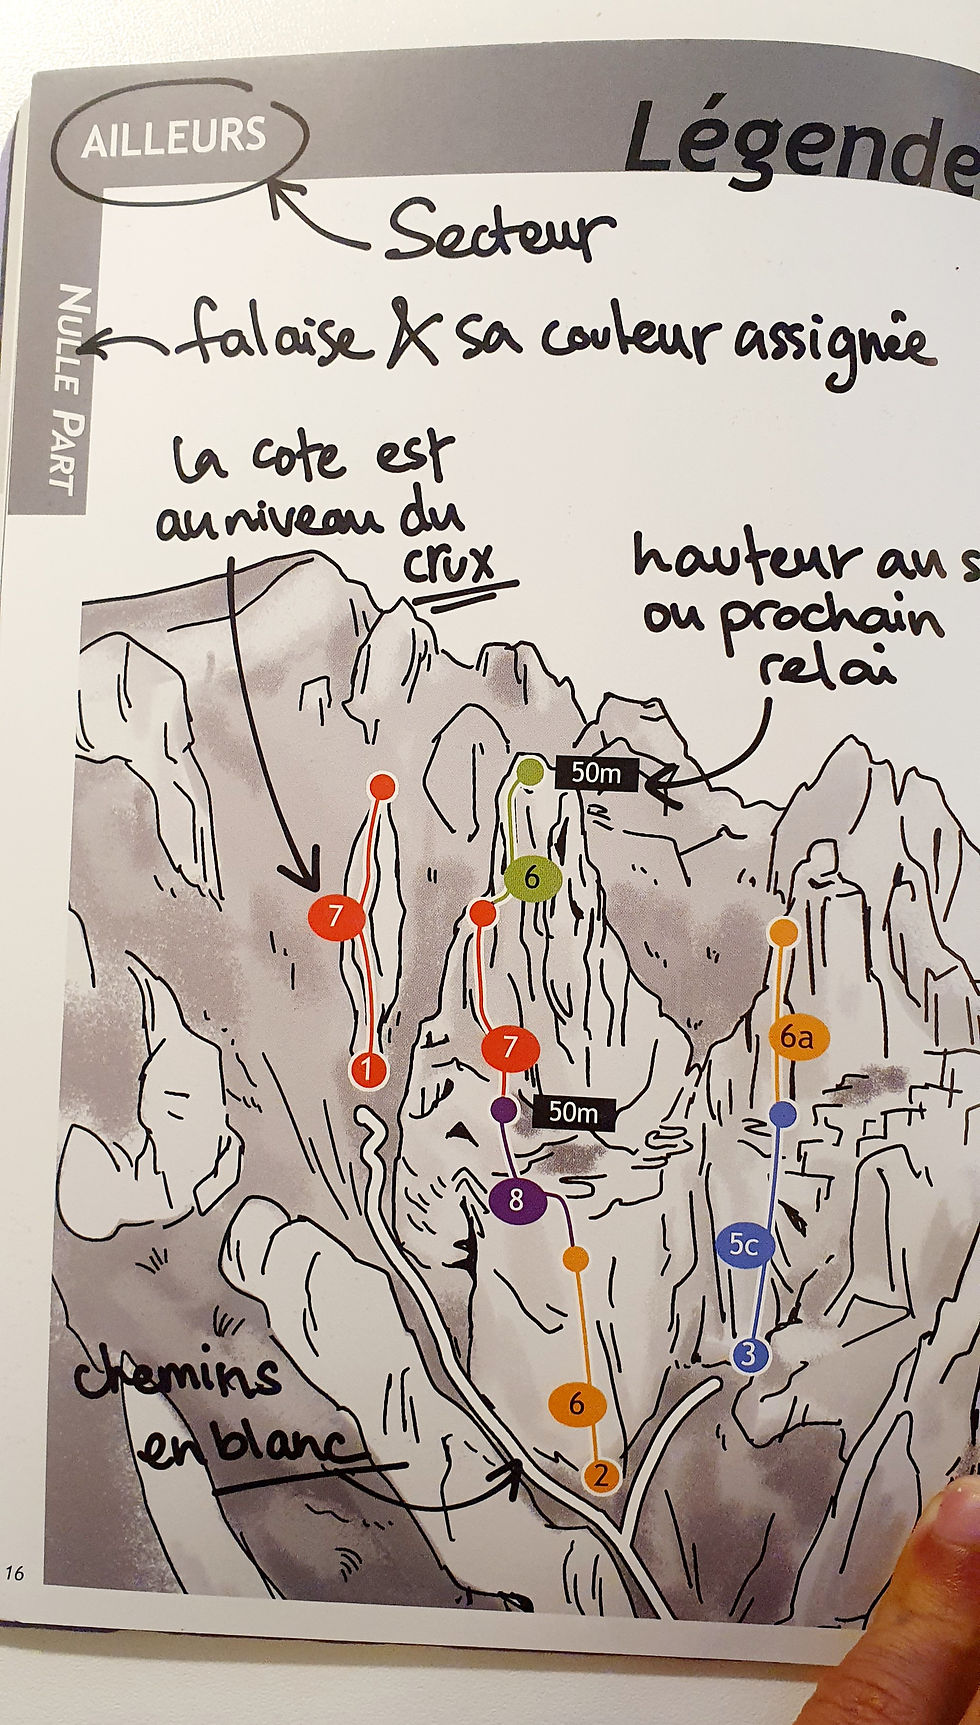 AILLEURS
Légende
Secteur
NULLE PART
falaise & sa couleur assignée
la cote est
au niveau du
crux
hauteur au
ou prochain
relai
50m
6
7
7
1
50m
6a
8
5c
3
chemins
en blanc
6
2
16